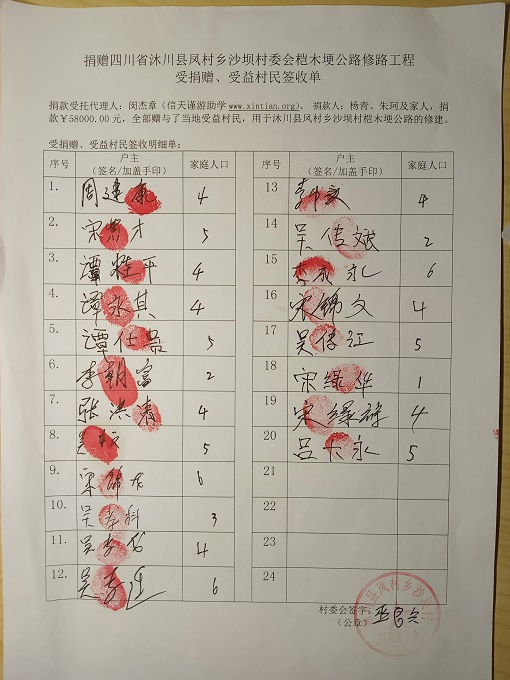 捐赠四川省沐川县凤村乡沙坝村委会桤木埂公路修路工程
受捐赠、受益村民签收单
捐款受托代理人：闵杰章（信天谨游助学 www.xintian.org）。 捐款人：杨青、朱珂及家人，捐
款￥58000.00 元，全部赠与了当地受益村民，用于沐川县凤村乡沙坝村桤木埂公路的修建。
受捐赠、受益村民签收明细单：
序号 户主（签名/加盖手印） 家庭人口 序号 户主（签名/加盖手印） 家庭人口
1. 周建康 4 13 4
2. 宋紫才 5 14 吴信斌 2
3. 谭桂平 4 15 李永 6
4. 谭永其 4 16 宋锦文 4
5. 谭仕 5 17 吴信江 5
6. 李朝富 2 18 宋绿华 1
7. 张洪春 4 19 宋绿 4
8. 5 20 吕永 5
9. 宋锦 6 21
10. 吴孝科 3 22
11. 吴孝 4 23
12. 吴孝 6 24
村委会签字：
（公章）
县凤村乡沙